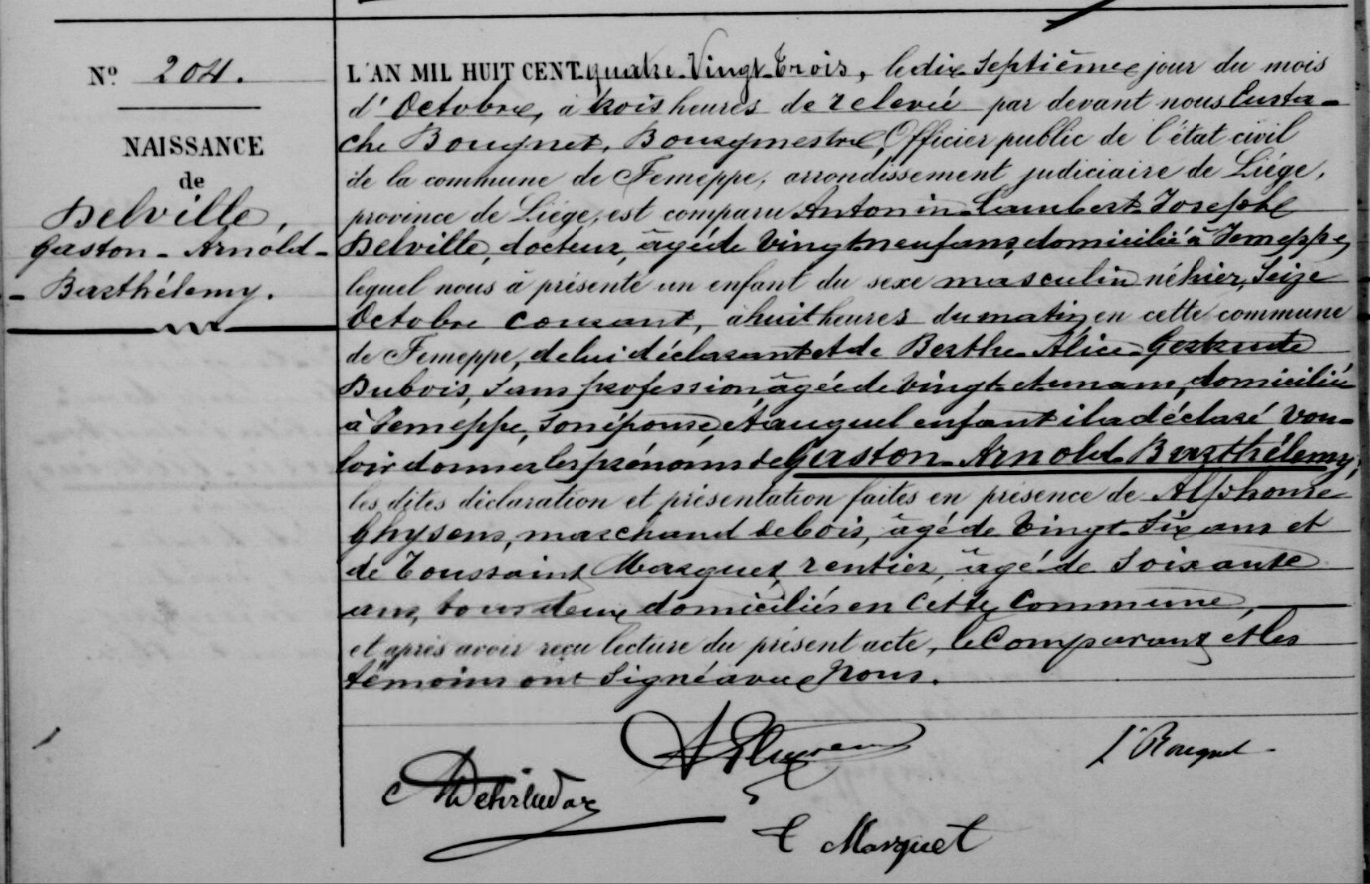 Nº 204.
NAISSANCE
de
Delville,
Gaston - Arnold -
- Barthélemy.
L'AN MIL HUIT CENT quatre-Vingt-Trois, le dix Septième jour du mois
d'Octobre, à trois heures de relevée par devant nous Eusta-
che Bouquet, Bourgmestre, Officier public de l'état civil
de la commune de Jemeppe, arrondissement judiciaire de Liége,
province de Liége, est comparu Antonin-Lambert-Joseph
Delville, docteur, âgé de Vingt neuf ans, domicilié à Jemeppe,
lequel nous à présenté un enfant du sexe masculin né hier, Seize
Octobre courant, à huit heures du matin en cette commune
de Jemeppe, de lui déclarant et de Berthe-Alice-Gertrude
Dubois, sans profession âgée de vingt et un ans, domiciliée
à Jemeppe, son épouse, et auquel enfant il a déclaré vou-
loir donner les prénoms de Gaston-Arnold Barthélemy,
les dites déclaration et présentation faites en présence de Alphonse
Ghysens, marchand de bois, âgé de Vingt-Six ans et
de Toussaint Marquet, rentier, âgé de Soixante
ans, tous deux domiciliés en cette Commune,
et après avoir reçu lecture du présent acte, le Comparant et les
témoins ont Signé avec Nous.
E Bouquet
T Marquet